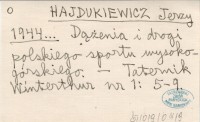 O HAJDUKIEWICZ Jerzy
1944... Dążenia i drogi
polskiego sportu wysoko-
górskiego. — Taternik
Winterthur nr 1: 5-9.